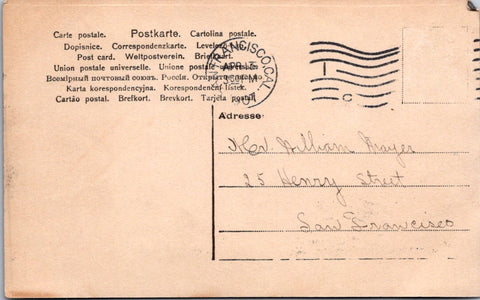 Carte postale. Postkarte. Cartolina postale.
Dopisnice. Correspondenzkarte. Levelező
Post card. Weltpostverein. Brief
Union postale universelle. Unione postale
Всемірный почтовый союзъ. Россія. Открытое письмо.
Karta korespondencyjna. Korespondenční lístek.
Cartão postal. Brefkort. Brevkort. Tarjeta postal.
FRANCISCO, CAL.
APR 13
M
I
C
Adresse:
Mr. William Mayer
25 Henry Street
San Francisco